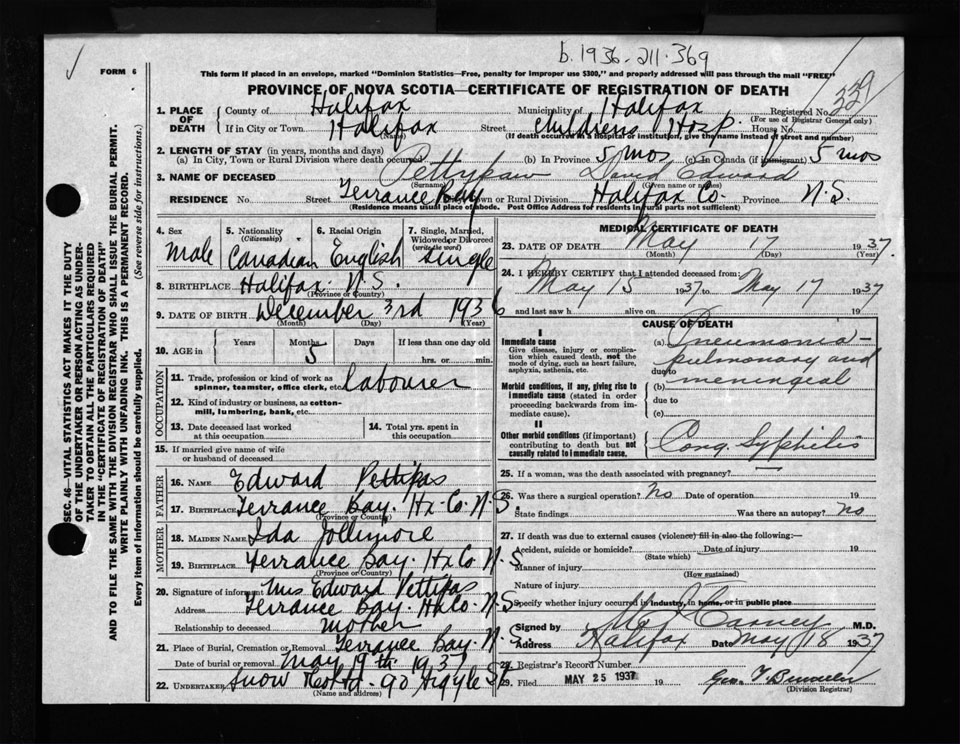 b. 1936-211-369
FORM 6
This form if placed in an envelope, marked "Dominion Statistics—Free, penalty for improper use $300," and properly addressed will pass through the mail "FREE"
PROVINCE OF NOVA SCOTIA—CERTIFICATE OF REGISTRATION OF DEATH
1. PLACE OF DEATH County of Halifax Municipality of Halifax Registered No.
(For use of Registrar General only)
If in City or Town Halifax (Name) Street Childrens Hosp. House No.
(If death occurred in a hospital or institution, give the name instead of street and number)
2. LENGTH OF STAY (in years, months and days)
(a) In City, Town or Rural Division where death occurred (b) In Province 5 mos (c) In Canada (if immigrant) 5 mos
3. NAME OF DECEASED Pettypaw David Edward
(Surname) (Given name or names)
RESIDENCE No. Street Terrance Bay Town or Rural Division Halifax Co. Province N.S.
(Residence means usual place of abode. Post Office Address for residents in rural parts not sufficient)
4. Sex Male
5. Nationality (Citizenship) Canadian
6. Racial Origin English
7. Single, Married, Widowed or Divorced (write the word) Single
8. BIRTHPLACE Halifax N.S.
(Province or Country)
9. DATE OF BIRTH December 3rd 1936
(Month) (Day) (Year)
10. AGE in Years Months 5 Days If less than one day old
hrs. or min.
OCCUPATION
11. Trade, profession or kind of work as spinner, teamster, office clerk, etc. labourer
12. Kind of industry or business, as cotton-mill, lumbering, bank, etc.
13. Date deceased last worked at this occupation
14. Total yrs. spent in this occupation
15. If married give name of wife or husband of deceased
FATHER
16. NAME Edward Pettipas
17. BIRTHPLACE Terrance Bay. Hx Co. N.S.
(Province or Country)
MOTHER
18. MAIDEN NAME Ida Jollymore
19. BIRTHPLACE Terrance Bay. Hx Co N.S
(Province or Country)
20. Signature of informant Mrs Edward Pettipas
Address Terrance Bay. Hx Co. N.S.
Relationship to deceased mother
21. Place of Burial, Cremation or Removal Terrance Bay. N.S.
Date of burial or removal May 19th 1937
22. UNDERTAKER Snow & Co Ltd - 90 Argyle St
(Name and address)
MEDICAL CERTIFICATE OF DEATH
23. DATE OF DEATH May 17 1937
(Month) (Day) (Year)
24. I HEREBY CERTIFY that I attended deceased from:
May 15 1937 to May 17 1937
and last saw h alive on 19
CAUSE OF DEATH
I
Immediate cause
Give disease, injury or complication which caused death, not the mode of dying, such as heart failure, asphyxia, asthenia, etc.
(a) Pneumonia -
pulmonary and
due to
meningeal
Morbid conditions, if any, giving rise to immediate cause (stated in order proceeding backwards from immediate cause).
(b)
due to
(c)
II
Other morbid conditions (if important) contributing to death but not causally related to immediate cause.
Cong Syphilis
25. If a woman, was the death associated with pregnancy?
26. Was there a surgical operation? No Date of operation 19
State findings Was there an autopsy? no
27. If death was due to external causes (violence) fill in also the following:—
Accident, suicide or homicide? Date of injury 19
(State which)
Manner of injury
(How sustained)
Nature of injury
Specify whether injury occurred in industry, in home, or in public place
Signed by Carney M.D.
Address Halifax Date May 18 1937
28. Registrar's Record Number
29. Filed MAY 25 1937 19
(Division Registrar)
SEC. 46—VITAL STATISTICS ACT MAKES IT THE DUTY
OF THE UNDERTAKER OR PERSON ACTING AS UNDER-
TAKER TO OBTAIN ALL THE PARTICULARS REQUIRED
IN THE "CERTIFICATE OF REGISTRATION OF DEATH"
AND TO FILE THE SAME WITH THE DIVISION REGISTRAR WHO SHALL ISSUE THE BURIAL PERMIT.
WRITE PLAINLY WITH UNFADING INK. THIS IS A PERMANENT RECORD.
Every item of information should be carefully supplied. (See reverse side for instructions.)